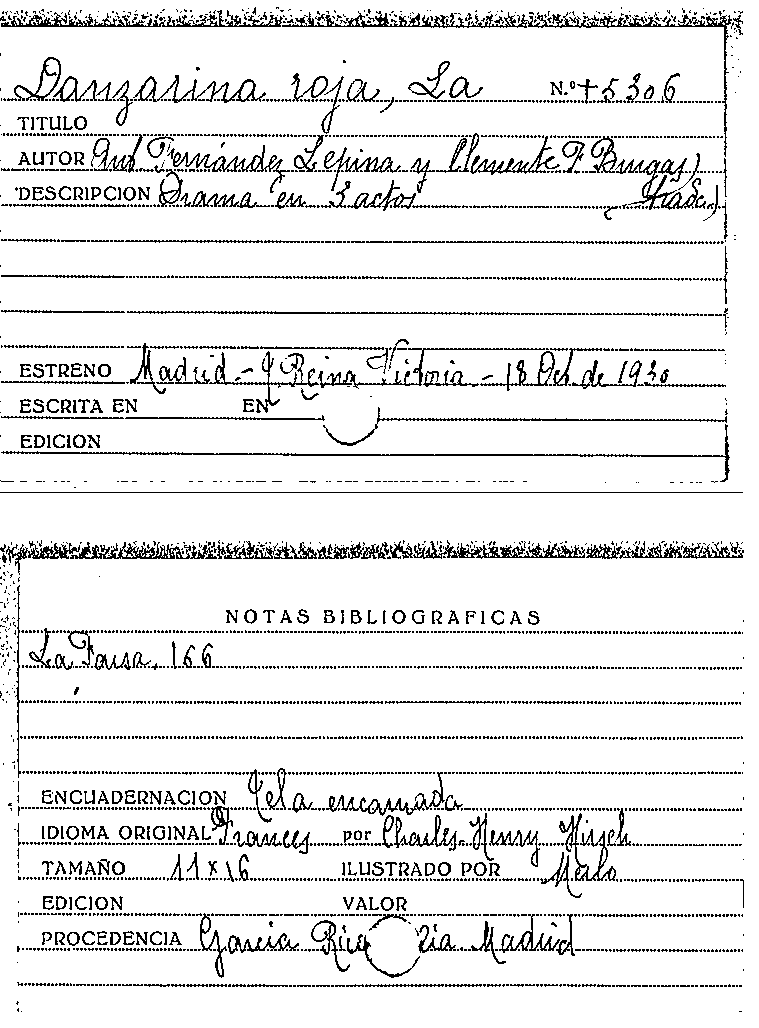 Danzarina roja, La N.º + 5306
TITULO
AUTOR Ant Fernández Lepina y Clemente F Burgas)
DESCRIPCION Drama en 3 actos (Trad.)
ESTRENO Madrid - T Reina Victoria - 18 Oct. de 1930
ESCRITA EN EN
EDICION
NOTAS BIBLIOGRAFICAS
La Farsa. 166
ENCUADERNACION Tela encarnada
IDIOMA ORIGINAL Frances por Charles-Henry Hirsch
TAMAÑO 11 x 16 ILUSTRADO POR Merlo
EDICION VALOR
PROCEDENCIA Garcia Rico Madrid